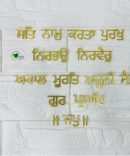 ਸਤਿ ਨਾਮੁ ਕਰਤਾ ਪੁਰਖੁ
ਨਿਰਭਉ ਨਿਰਵੈਰੁ
ਅਕਾਲ ਮੂਰਤਿ ਅਜੂਨੀ ਸੈ
ਗੁਰ ਪ੍ਰਸਾਦਿ
॥ ਜਪੁ ॥